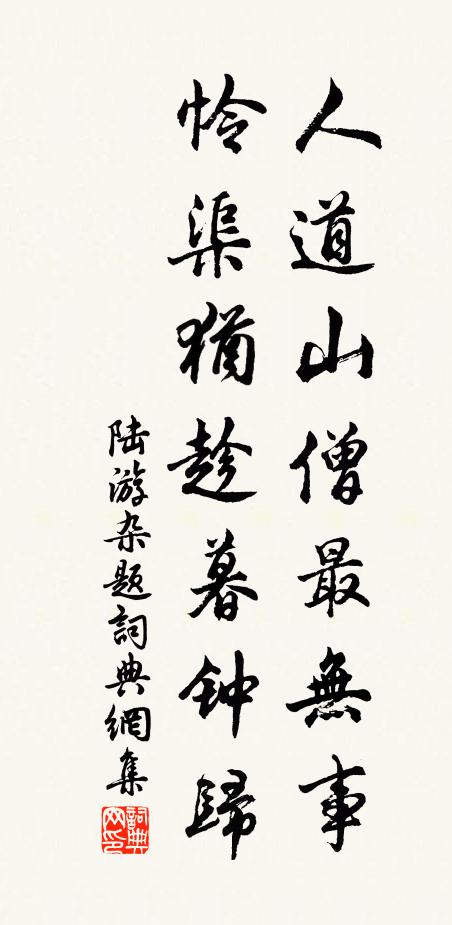 人道山僧最無事
怜渠猶趁暮钟歸
陆游杂题詞典網集
詞典网印